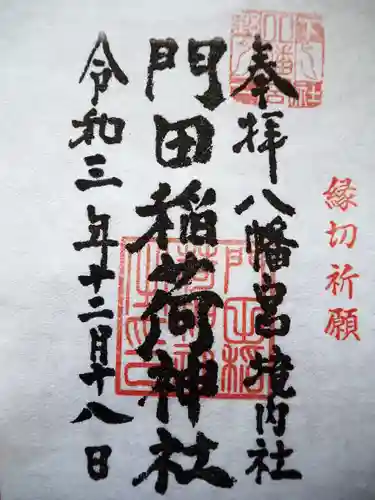 縁切祈願
奉拝 八幡宮境内社
門田稲荷神社
令和三年十二月十八日